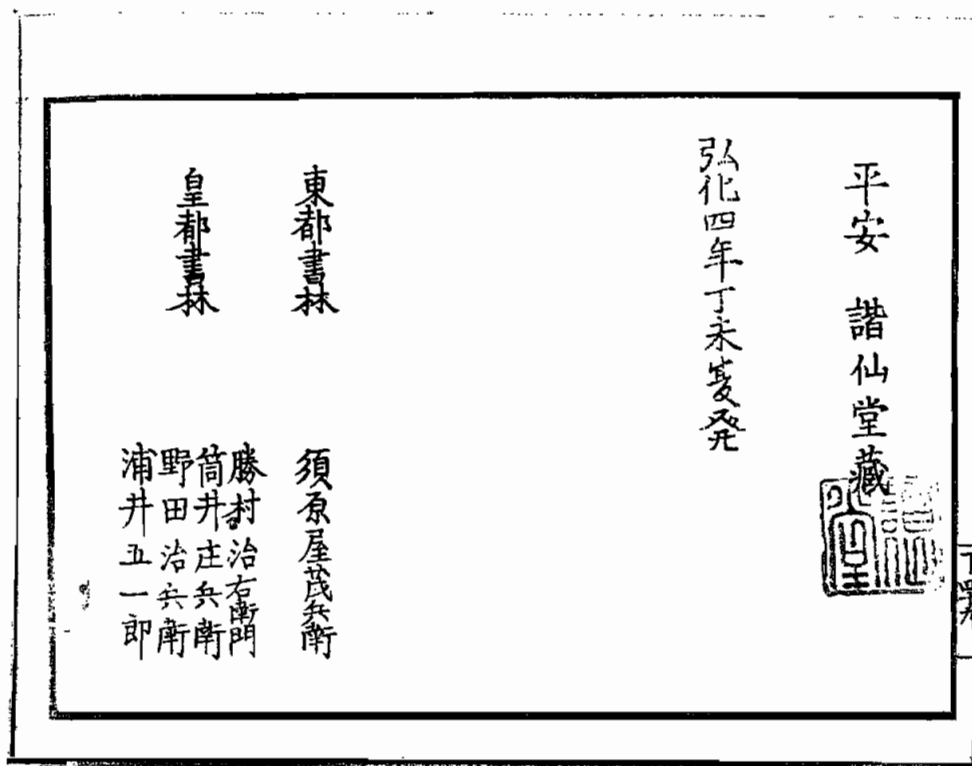 平安 諧仙堂藏
弘化四年丁未夏発
東都書林 須原屋茂兵衛
皇都書林 勝村治右衛門
筒井庄兵衛
野田治兵衛
浦井五一郎